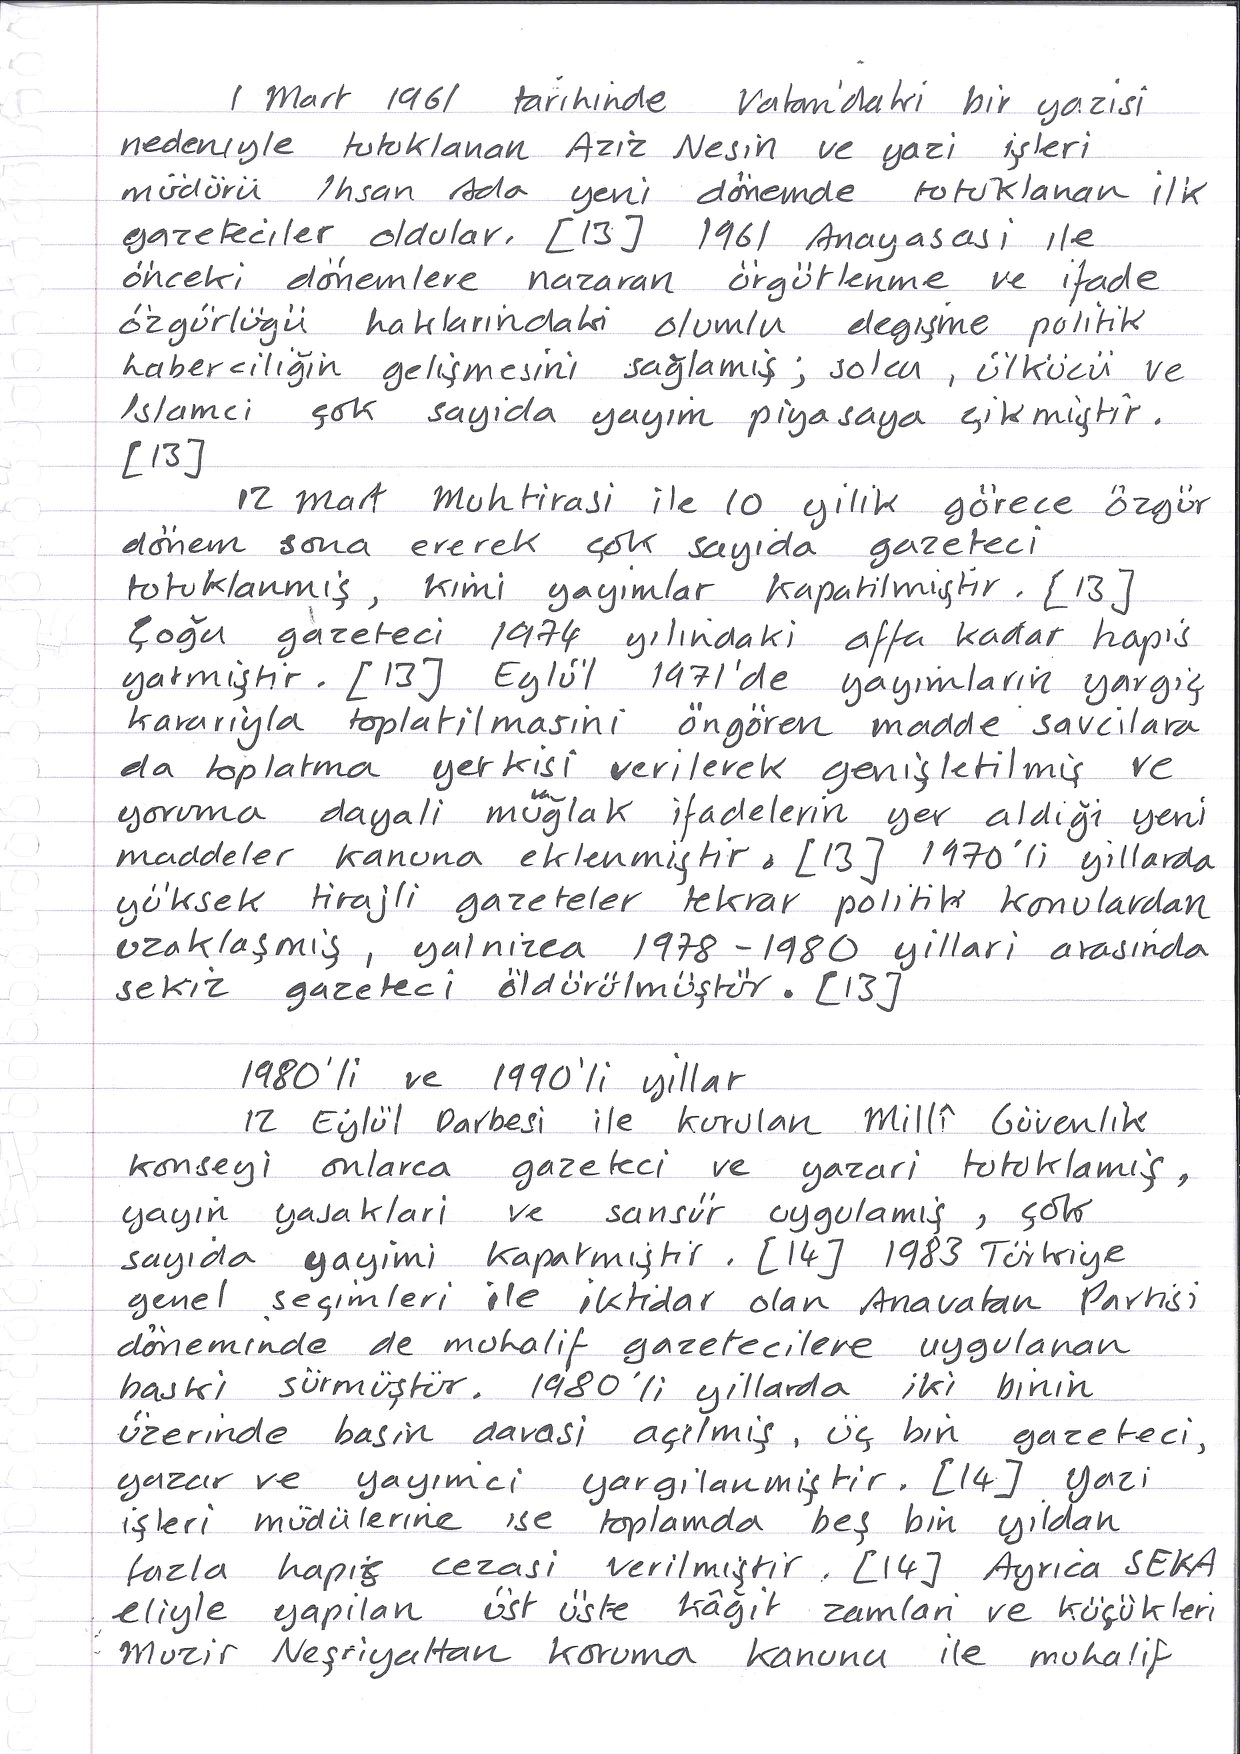 1 Mart 1961 tarihinde Vatan'daki bir yazisi
nedeniyle tutuklanan Aziz Nesin ve yazi işleri
müdürü Ihsan Ada yeni dönemde tutuklanan ilk
gazeteciler oldular. [13] 1961 Anayasasi ile
önceki dönemlere nazaran örgütlenme ve ifade
özgürlüğü haklarindaki olumlu değişme politik
haberciliğin gelişmesini sağlamiş; solcu, ülkücü ve
Islamci çok sayida yayim piyasaya çikmiştir.
[13]
12 Mart Muhtirasi ile 10 yilik görece özgür
dönem sona ererek çok sayida gazeteci
tutuklanmiş, kimi yayimlar kapatilmiştir. [13]
Çoğu gazeteci 1974 yilindaki affa kadar hapis
yatmiştir. [13] Eylül 1971'de yayimlarin yargiç
karariyla toplatilmasini öngören madde savcilara
da toplatma yetkisi verilerek genişletilmiş ve
yoruma dayali müğlak ifadelerin yer aldiği yeni
maddeler kanuna eklenmiştir. [13] 1970'li yillarda
yüksek tirajli gazeteler tekrar politik konulardan
uzaklaşmiş, yalnizca 1978-1980 yillari arasinda
sekiz gazeteci öldürülmüştür. [13]
1980'li ve 1990'li yillar
12 Eylül Darbesi ile kurulan Millî Güvenlik
Konseyi onlarca gazeteci ve yazari tutuklamiş,
yayin yasaklari ve sansür uygulamiş, çok
sayida yayimi kapatmiştir. [14] 1983 Türkiye
genel seçimleri ile iktidar olan Anavatan Partisi
döneminde de muhalif gazetecilere uygulanan
baski sürmüştür. 1980'li yillarda iki binin
üzerinde basin davasi açilmiş, üç bin gazeteci,
yazar ve yayimci yargilanmiştir. [14] Yazi
işleri müdülerine ise toplamda beş bin yildan
fazla hapis cezasi verilmiştir. [14] Ayrica SEKA
eliyle yapilan üst üste kâğit zamlari ve küçükleri
Muzir Neşriyattan koruma kanunu ile muhalif